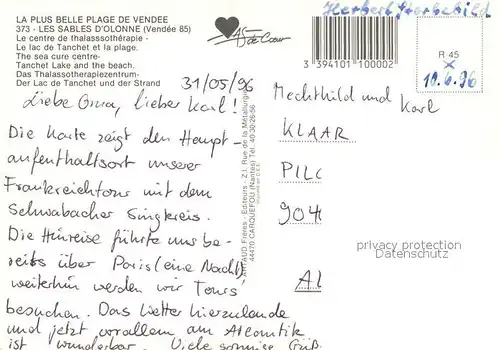 LA PLUS BELLE PLAGE DE VENDEE
373 - LES SABLES D'OLONNE (Vendée 85)
Le centre de thalasssothérapie -
Le lac de Tanchet et la plage.
The sea cure centre-
Tanchet Lake and the beach.
Das Thalassotherapiezentrum-
Der Lac de Tanchet und der Strand
AS de Cœur
3 394101 100002
Herbert
R 45
10.6.96
31/05/96
Liebe Oma, lieber Karl!
Die Karte zeigt den Haupt-
aufenthaltsort unserer
Frankreichtour mit dem
Schwabacher Singkreis.
Die Hinreise führte uns be-
reits über Paris (eine Nacht)
weiterhin werden wir Tours
besuchen. Das Wetter hierzulande
und jetzt vorallem am Atlantik
ist wunderbar. Viele sonnige Grüß
ARTAUD Frères - Editeurs - Z.I. Rue de la Métallurgie
44470 CARQUEFOU (Nantes) Tél. 40/30-26-56
Mechthild und Karl
KLAAR
PILC
904
AL
privacy protection
Datenschutz